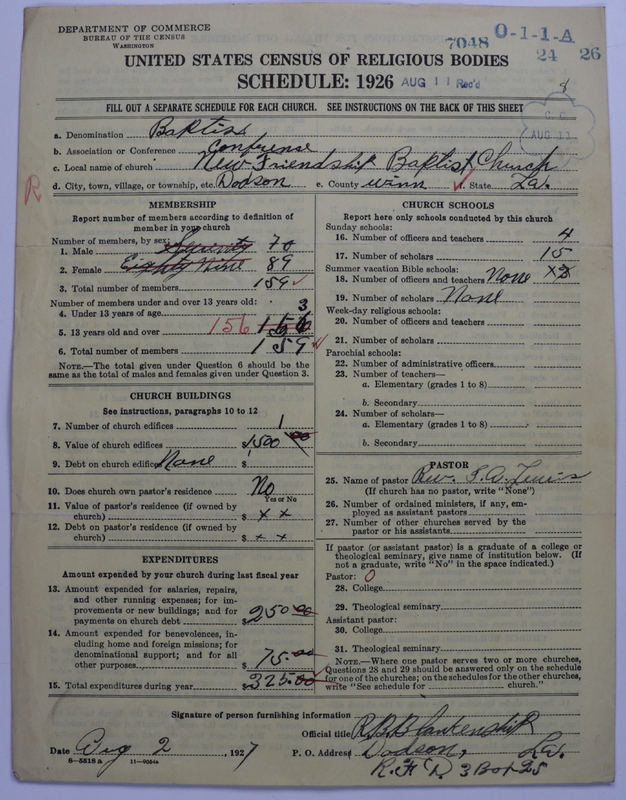 DEPARTMENT OF COMMERCE
BUREAU OF THE CENSUS
WASHINGTON
7048 0-1-1-A
24 26
UNITED STATES CENSUS OF RELIGIOUS BODIES
SCHEDULE: 1926 AUG 11 Rec'd
8
FILL OUT A SEPARATE SCHEDULE FOR EACH CHURCH. SEE INSTRUCTIONS ON THE BACK OF THIS SHEET
AUG 11
a. Denomination Baptiss
b. Association or Conference Confrense
c. Local name of church New Friendship Baptist Church
R
d. City, town, village, or township, etc. Dodson e. County winn State La.
MEMBERSHIP
Report number of members according to definition of
member in your church
Number of members, by sex:
1. Male Seventy 70
2. Female Eighty Nine 89
3. Total number of members 159
Number of members under and over 13 years old:
4. Under 13 years of age 3
5. 13 years old and over 156 156
6. Total number of members 159
NOTE.—The total given under Question 6 should be
same as the total of males and females given under Question 3.
CHURCH BUILDINGS
See instructions, paragraphs 10 to 12
7. Number of church edifices 1
8. Value of church edifices $1500 00
9. Debt on church edifices None $
10. Does church own pastor's residence No
Yes or No
11. Value of pastor's residence (if owned by
church) $ x x
12. Debt on pastor's residence (if owned by
church) $ x x
EXPENDITURES
Amount expended by your church during last fiscal year
13. Amount expended for salaries, repairs,
and other running expenses; for im-
provements or new buildings; and for
payments on church debt $250 00
14. Amount expended for benevolences, in-
cluding home and foreign missions; for
denominational support; and for all
other purposes $75.00
15. Total expenditures during year $325.00
CHURCH SCHOOLS
Report here only schools conducted by this church
Sunday schools:
16. Number of officers and teachers 4
17. Number of scholars 15
Summer vacation Bible schools:
18. Number of officers and teachers None
19. Number of scholars None
Week-day religious schools:
20. Number of officers and teachers
21. Number of scholars
Parochial schools:
22. Number of administrative officers
23. Number of teachers—
a. Elementary (grades 1 to 8)
b. Secondary
24. Number of scholars—
a. Elementary (grades 1 to 8)
b. Secondary
PASTOR
25. Name of pastor Rev.
(If church has no pastor, write "None")
26. Number of ordained ministers, if any, em-
ployed as assistant pastors
27. Number of other churches served by the
pastor or his assistants
If pastor (or assistant pastor) is a graduate of a college or
theological seminary, give name of institution below. (If
not a graduate, write "No" in the space indicated.)
Pastor: 0
28. College
29. Theological seminary
Assistant pastor:
30. College
31. Theological seminary
NOTE.—Where one pastor serves two or more churches,
Questions 28 and 29 should be answered only on the schedule
for one of the churches; on the schedules for the other churches,
write "See schedule for church."
Signature of person furnishing information
Official title R.B. Blankenship
Date Aug 2, 1927 P. O. Address Dodson, La.
R.F.D. 3 Box 25
8—5518 a 11—9054a